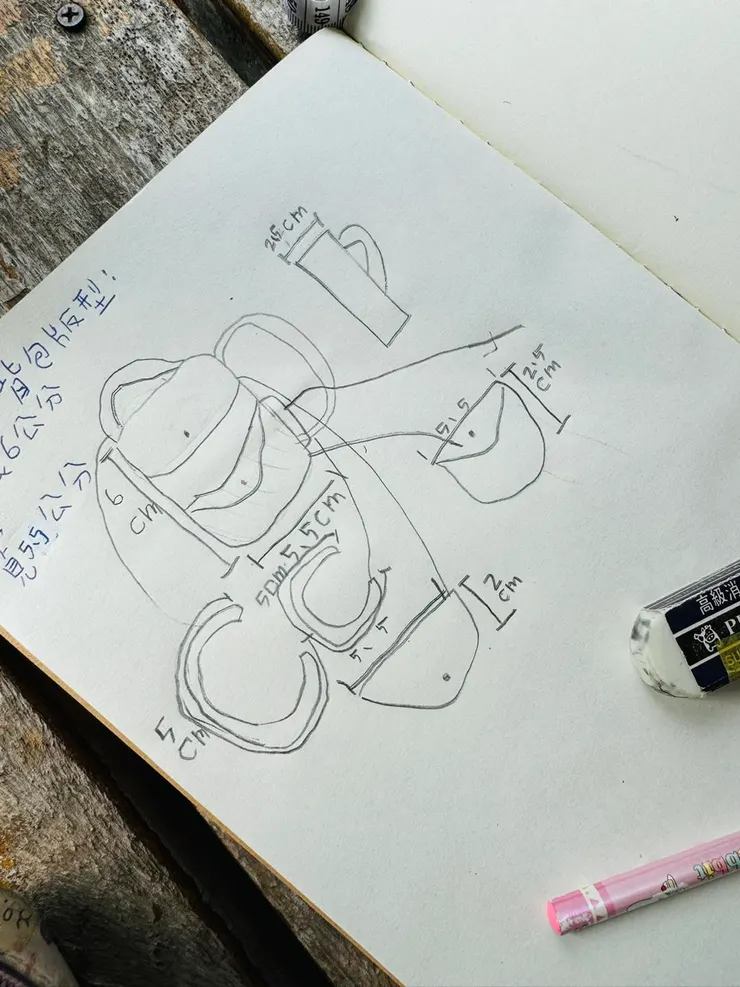 背包版型!
6公分
寬5.5公分
2.5cm
6
cm
5.5cm
5cm
5、5
2.5
cm
5、5
2
cm
5
cm
高級消